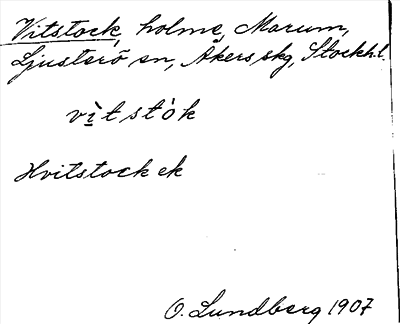 Vitstock, holme, Marum,
Ljusterö sn, Åkers skg, Stockh.l.
vì̲tstò̀k
Hvitstock ek
O. Lundberg 1907